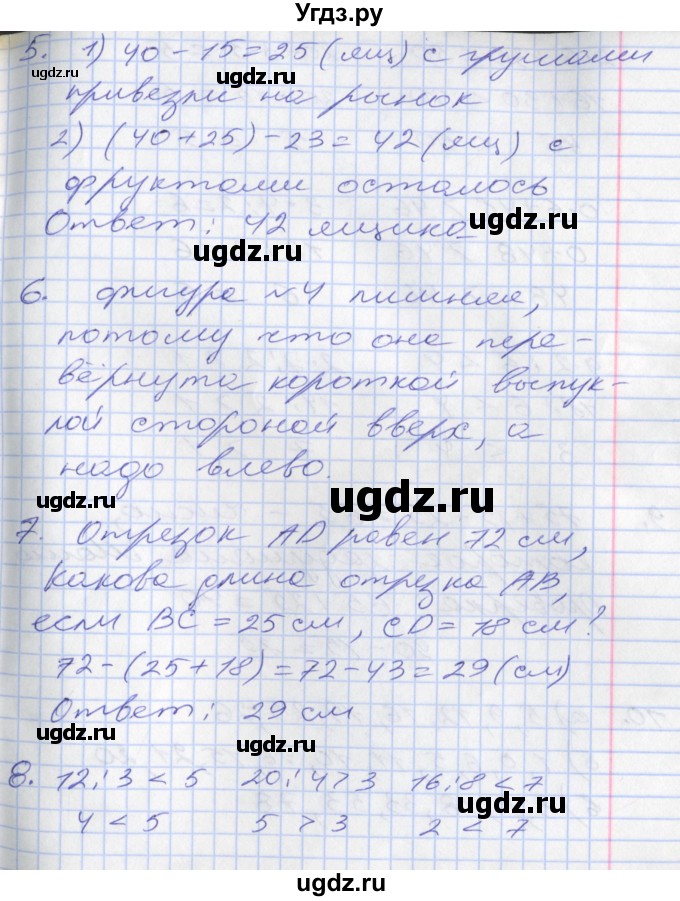 Угдз.ру
5. 1) 40 - 15 = 25 (ящ) с грушами
ugdz.ru ugdz.ru ugdz.ru
привезли на рынок
2) (40 + 25) - 23 = 42 (ящ) с
фруктами осталось
Ответ: 42 ящика
ugdz.ru ugdz.ru
6. фигура №4 лишняя,
потому что она пере-
вёрнута короткой выпук-
лой стороной вверх, а
надо влево.
ugdz.ru
7. Отрезок AD равен 72 см,
Какова длина отрезка AB,
ugdz.ru ugdz.ru
если BC = 25 см, CD = 18 см?
72 - (25 + 18) = 72 - 43 = 29 (см)
Ответ: 29 см
ugdz.ru ugdz.ru
8. 12:3 < 5 20:4 > 3 16:8 < 7
ugdz.ru
4 < 5 5 > 3 2 < 7
ugdz.ru
ugdz.ru